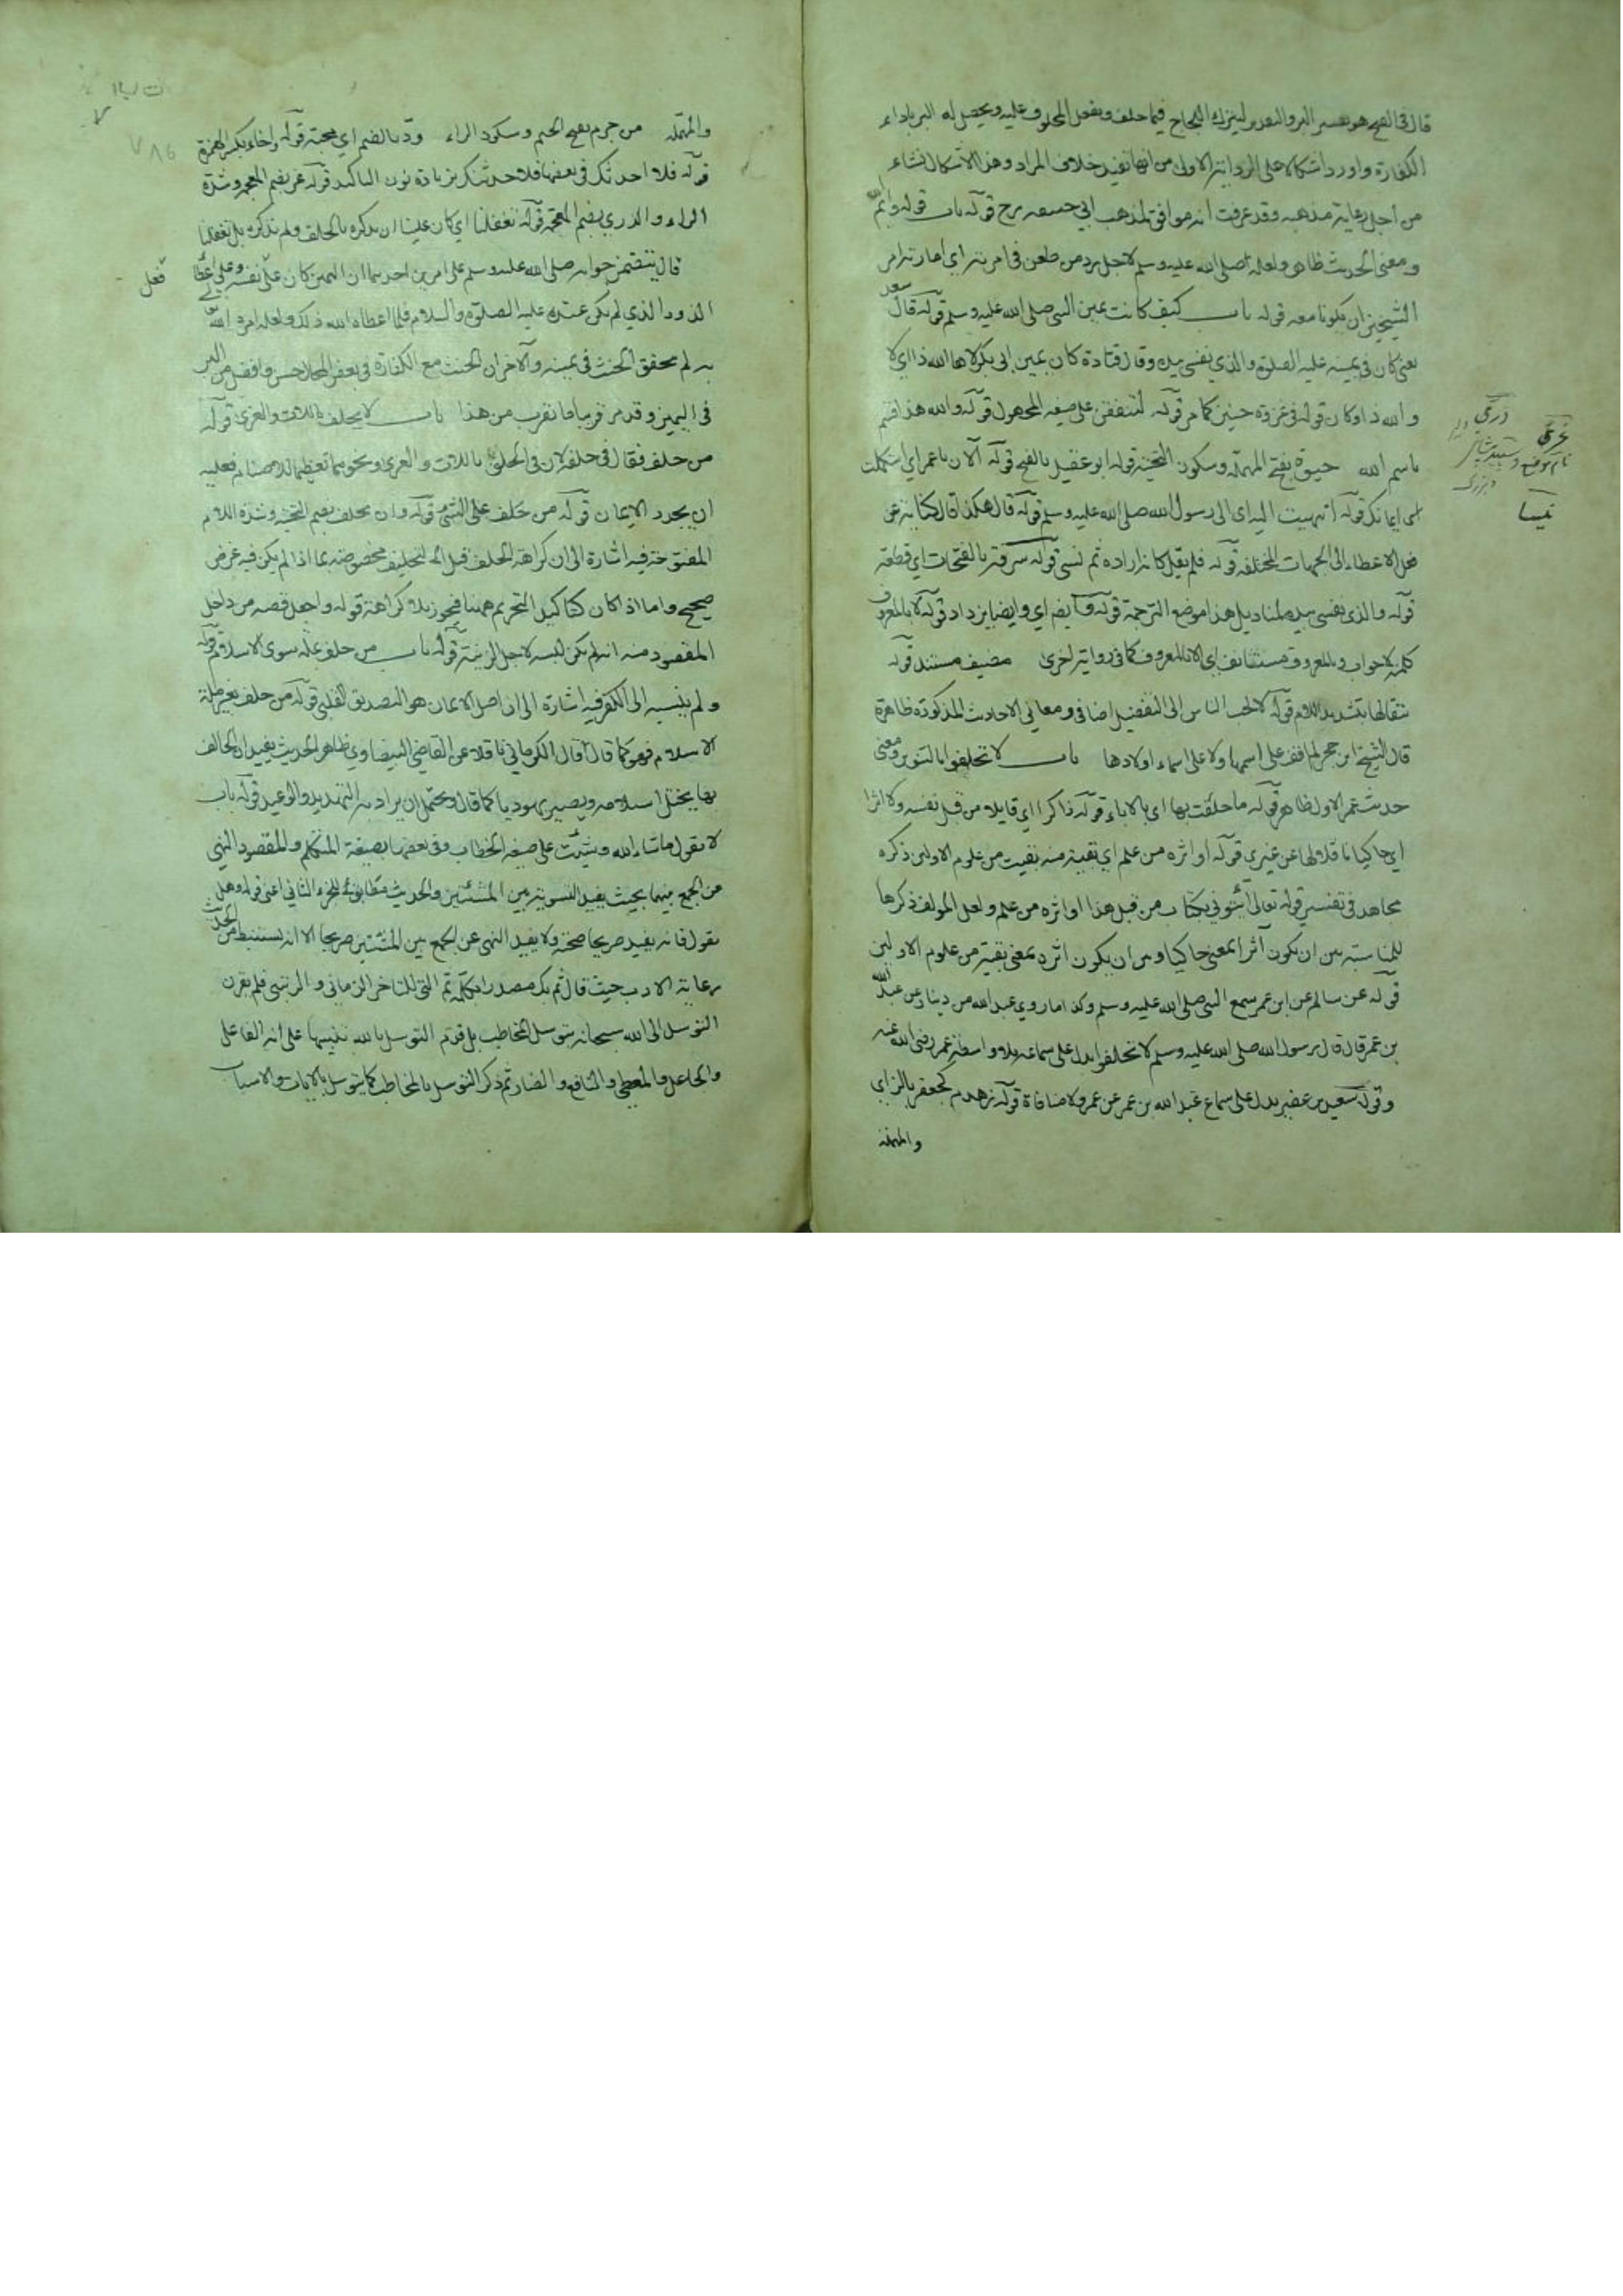 قال في الفتح هو تفسير البر والتقدير ليترك اللجاج فيما حلف ويفعل المحلوف عليه ويحصل له البر باداء
الكفارة واورد اشكالا على الرواية الاولى من انها تفيد خلاف المراد وهذا الاشكال نشاء
من أجل رعاية مذهبه وقد عرفت انه موافق لمذهب ابي حنيفة رح قوله باب قوله وايم الله
ومعنى الحديث ظاهر ولعله صلى الله عليه وسلم لاجل رد من طعن في امرته اي امارته امر
الشيخين ان يكونا معه قوله باب كيف كانت يمين النبي صلى الله عليه وسلم قوله قال سعد
يعني كان في يمينه عليه الصلوة والذي نفسي بيده وقال قتادة كان يمين ابي بكر لاها الله ذا اي لا
والله ذا وكان قوله في غزوة حنين كما مر قوله لتنفقن على صيغة المجهول قوله والله هذا قسم
باسم الله حيوة بفتح المهملة وسكون التحتية قوله ابو عقيل بالفتح قوله الآن يا عمر اي استكملت
ايمانك قوله انهيت اليه اي الى رسول الله صلى الله عليه وسلم قوله قال هكذا قال كناية عن
فعل الاعطاء الى الجهات المختلفة قوله فلم يقل كانه اراده ثم نسي قوله سرقة بالفتحات اي قطعة
قوله والذي نفسي بيده لمناديل هذا موضع الترجمة قوله وايضا اي وايضا يزداد قوله لا بالمعروف
كلمة لا جواب وبالمعروف مستثناف اي الا بالمعروف كما في رواية اخرى مضيف مستند قوله
يتقالها بتشديد اللام قوله لاحب الناس الي التفضيل اضافي ومعاني الاحاديث المذكورة ظاهرة
قال الشيخ ابن حجر لم اقف على اسمها ولا على اسماء اولادها باب لا تحلفوا بالتنوير ومعنى
حديث عمر الاول ظاهر قوله ما حلفت بها اي بالاباء قوله ذاكرا اي قايلا من قبل نفسه ولا اثرا
اي حاكيا ناقلا لها عن غيري قوله او اثرة من علم اي بقية منه بقيت من علوم الاولين ذكره
مجاهد في تفسير قوله تعالى ائتوني بكتاب من قبل هذا او اثرة من علم ولعل المؤلف ذكرها
للمناسبة بين ان يكون آثرا بمعنى حاكيا وبين ان يكون اثرة بمعنى بقية من علوم الاولين
قوله عن سالم عن ابن عمر سمع النبي صلى الله عليه وسلم وكذا ما روي عبد الله بن دينار عن عبد الله
بن عمر قال قال رسول الله صلى الله عليه وسلم لا تحلفوا يدل على سماعه بلا واسطة عمر رضي الله عنه
وقوله سعيد بن عفير يدل على سماع عبد الله بن عمر عن عمر ولا منافاة قوله زهدم كجعفر بالزاي
والمهملة
والمهملة من جرم بفتح الجيم وسكون الراء ود بالضم اي محبة قوله واخاء بكسر الهمزة
قوله فلا احدثك في بعضها فلاحدثنك بزيادة نون التاكيد قوله غر بضم المعجمة وشدة
الراء والذري بضم المعجمة قوله تغفلنا اي كان علينا ان نذكره بالحلف ولم نذكره بل تغفلنا
قال يتضمن جوابه صلى الله عليه وسلم على امرين احدهما ان اليمين كان على نفسه وعلى اعطاء
فعل
الذود الذي لم يكن عنده عليه الصلوة والسلام فلما اعطاه الله ذلك ولعله امره الله
به لم يحقق الحنث في يمينه والآخر ان الحنث مع الكفارة في بعض المحال حسن وافضل من البر
في اليمين وقد مر قريبا ما تقرب من هذا باب لا يحلف باللات والعزى قوله
من حلف فقال في حلفه لان في الحلف باللات والعزى ونحوهما تعظيما للاصنام فعليه
ان يجدد الايمان قوله من حلف على الشيء قوله وان يحلف بضم التحتية وشدة اللام
المفتوحة فيه اشارة الى ان كراهة الحلف قبل التحليف مخصوصة بما اذا لم يكن فيه غرض
صحيح واما اذا كان كتاكيد التحريم ههنا فيجوز بلا كراهة قوله واجعل فصه من داخل
المقصود منه انه لم يكن لبسه لاجل الزينة قوله باب من حلف بملة سوى الاسلام قوله
ولم ينسبه الى الكفر فيه اشارة الى ان اصل الايمان هو التصديق القلبي قوله من حلف بغير ملة
الاسلام فهو كما قال قال الكرماني ناقلا عن القاضي البيضاوي ظاهر الحديث يفيد ان الحالف
بها يختل اسلامه ويصير يهوديا كما قال ويحتمل ان يراد به التهديد والوعيد قوله باب
لا يقول ما شاء الله وشئت على صيغة الخطاب وفي بعضها بصيغة المتكلم والمقصود النهي
عن الجمع بينهما بحيث يفيد التسوية بين المشئتين والحديث مطابق للجزء الثاني اعني قوله وهل
يقول فانه يفيد صريحا صحته ولا يفيد النهي عن الجمع بين المشئتين صريحا الا انه يستنبط من الحديث
رعاية الادب حيث قال ثم بك مصدرا بكلمة ثم التي للتاخر الزماني والرتبي فلم يقرن
التوسل الى الله سبحانه بتوسل المخاطب بل قدم التوسل بالله تنبيها على انه الفاعل
والجاعل والمعطي والنافع والضار ثم ذكر التوسل بالمخاطب كما يتوسل بالايات والاسباب